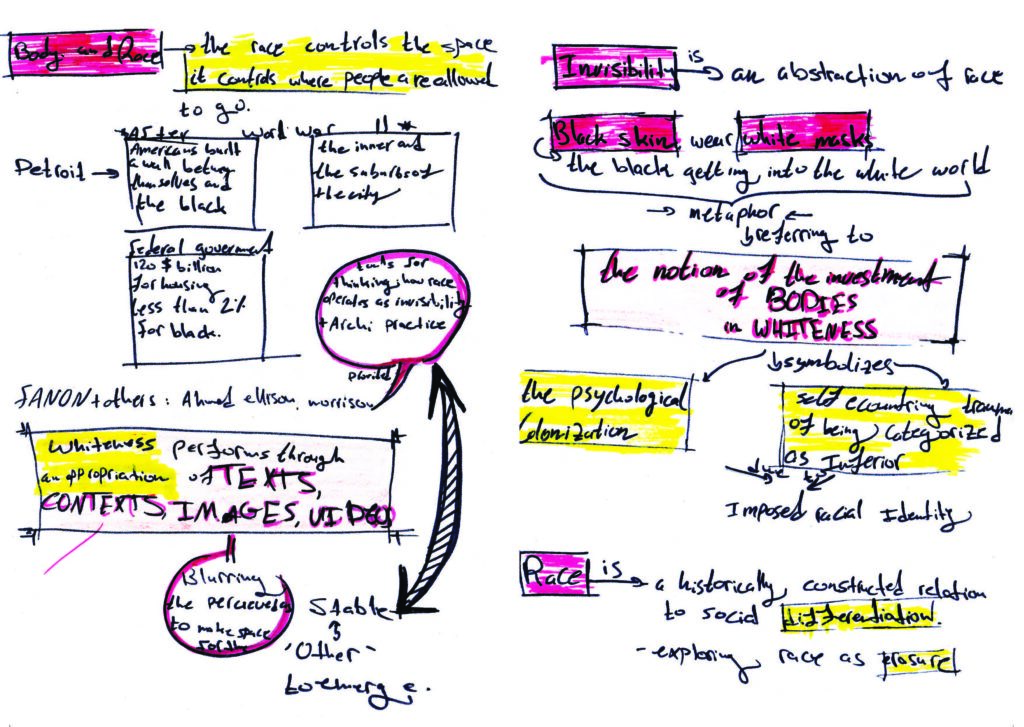 Body and Race → the race controls the space
it controls where people are allowed
to go.
After word war II *
Detroit →
Americans built
a wall betwen
themselves and
the black
the inner and
the suburbs of
the city
Federal goverment
120 $ billion
for housing
less than 2%
for black.
tools for
thinking how race
operates as invisibility
+ Archi practice
provided
FANON + others : Ahmed ellison, morrison
Whiteness performs through
an appropriation of TEXTS,
CONTEXTS, IMAGES, VIDEO
Blurring
the percieved as
to make space
for the
Stable
'Other'
to emerge.
Invisibility is → an abstraction of race
Black skin wear white masks
the black getting into the white world
→ metaphor ←
referring to
the notion of the investment
of BODIES
in WHITENESS
symbolizes
the psychological
colonization
self trauma
of being categorized
as Inferior
due to
Imposed racial Identity
Race is → a historically constructed relation
to social differentiation.
- exploring race as erasure